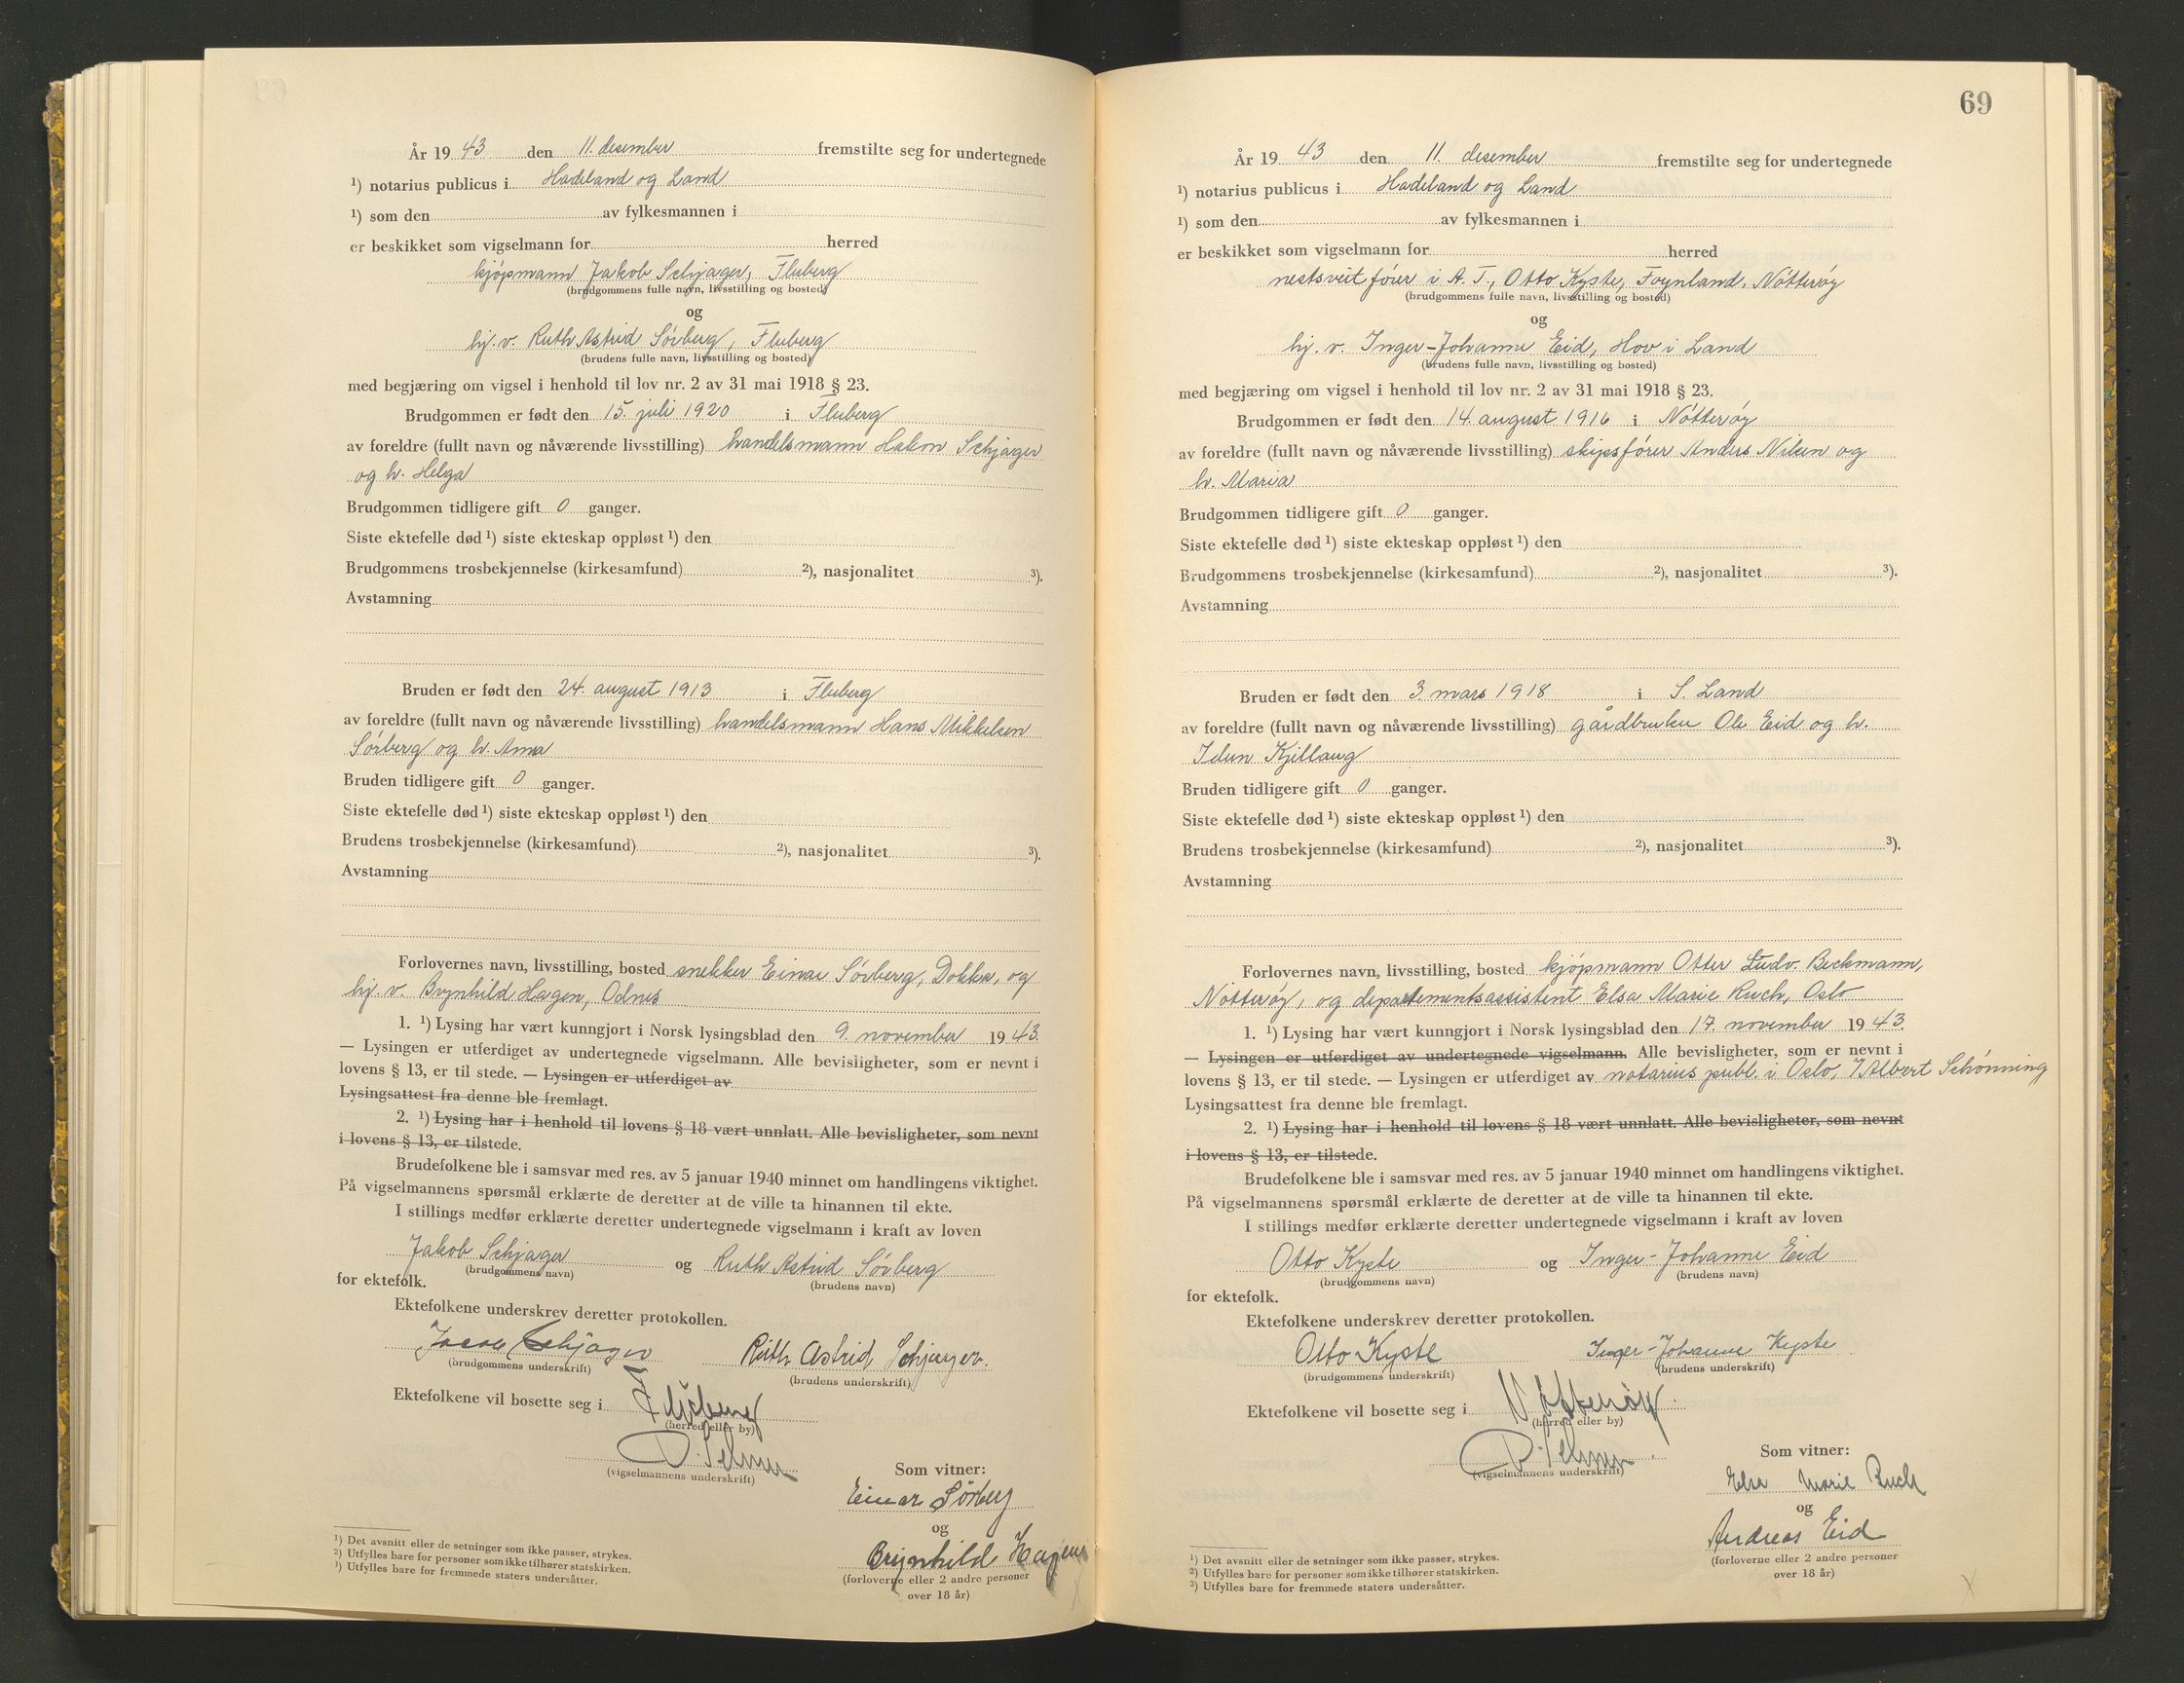 År 19 43 den 11. desember fremstilte seg for undertegnede
¹) notarius publicus i Hadeland og Land
¹) som den av fylkesmannen i
er beskikket som vigselmann for herred
kjøpmann Jakob Schjager, Fluberg
(brudgommens fulle navn, livsstilling og bosted)
og
hj. v. Ruth Astrid Sørberg, Fluberg
(brudens fulle navn, livsstilling og bosted)
med begjæring om vigsel i henhold til lov nr. 2 av 31 mai 1918 § 23.
Brudgommen er født den 15. juli 1920 i Fluberg
av foreldre (fullt navn og nåværende livsstilling) handelsmann Hakon Schjager
og h. Helga
Brudgommen tidligere gift 0 ganger.
Siste ektefelle død ¹) siste ekteskap oppløst ¹) den
Brudgommens trosbekjennelse (kirkesamfund) ²), nasjonalitet ³).
Avstamning
Bruden er født den 24. august 1913 i Fluberg
av foreldre (fullt navn og nåværende livsstilling) handelsmann Hans Mikkelsen
Sørberg og h. Anna
Bruden tidligere gift 0 ganger.
Siste ektefelle død ¹) siste ekteskap oppløst ¹) den
Brudens trosbekjennelse (kirkesamfund) ²), nasjonalitet ³).
Avstamning
Forlovernes navn, livsstilling, bosted snekker Einar Sørberg, Dokka, og
hj. v. Brynhild Hagen, Odnes
1. ¹) Lysing har vært kunngjort i Norsk lysingsblad den 9. november 19 43.
— Lysingen er utferdiget av undertegnede vigselmann. Alle bevisligheter, som er nevnt i
lovens § 13, er til stede. — Lysingen er utferdiget av
Lysingsattest fra denne ble fremlagt.
2. ¹) Lysing har i henhold til lovens § 18 vært unnlatt. Alle bevisligheter, som nevnt
i lovens § 13, er tilstede.
Brudefolkene ble i samsvar med res. av 5 januar 1940 minnet om handlingens viktighet.
På vigselmannens spørsmål erklærte de deretter at de ville ta hinannen til ekte.
I stillings medfør erklærte deretter undertegnede vigselmann i kraft av loven
Jakob Schjager og Ruth Astrid Sørberg
(brudgommens navn) (brudens navn)
for ektefolk.
Ektefolkene underskrev deretter protokollen.
Jacob Schjager Ruth Astrid Schjager.
(brudgommens underskrift) (brudens underskrift)
Ektefolkene vil bosette seg i Fluberg
(herred eller by)
(vigselmannens underskrift)
Som vitner:
Einar Sörberg
og
Brynhild Hagen
(forloverne eller 2 andre personer
over 18 år)
¹) Det avsnitt eller de setninger som ikke passer, strykes.
²) Utfylles bare for personer som ikke tilhører statskirken.
³) Utfylles bare for fremmede staters undersåtter.
69
År 19 43 den 11. desember fremstilte seg for undertegnede
¹) notarius publicus i Hadeland og Land
¹) som den av fylkesmannen i
er beskikket som vigselmann for herred
nestsveitfører i A. T., Otto Kyste, Føynland, Nøtterøy
(brudgommens fulle navn, livsstilling og bosted)
og
hj. v. Inger-Johanne Eid, Hov i Land
(brudens fulle navn, livsstilling og bosted)
med begjæring om vigsel i henhold til lov nr. 2 av 31 mai 1918 § 23.
Brudgommen er født den 14. august 1916 i Nøtterøy
av foreldre (fullt navn og nåværende livsstilling) skipsfører Anders Nilsen og
h. Maria
Brudgommen tidligere gift 0 ganger.
Siste ektefelle død ¹) siste ekteskap oppløst ¹) den
Brudgommens trosbekjennelse (kirkesamfund) ²), nasjonalitet ³).
Avstamning
Bruden er født den 3. mars 1918 i S. Land
av foreldre (fullt navn og nåværende livsstilling) gårdbruker Ole Eid og h.
Idun Kjillaug
Bruden tidligere gift 0 ganger.
Siste ektefelle død ¹) siste ekteskap oppløst ¹) den
Brudens trosbekjennelse (kirkesamfund) ²), nasjonalitet ³).
Avstamning
Forlovernes navn, livsstilling, bosted kjøpmann Otter Ludv. Beckmann,
Nøtterøy, og departementsassistent Elsa Marie Ruch, Oslo
1. ¹) Lysing har vært kunngjort i Norsk lysingsblad den 17. november 19 43.
— Lysingen er utferdiget av undertegnede vigselmann. Alle bevisligheter, som er nevnt i
lovens § 13, er til stede. — Lysingen er utferdiget av notarius publ. i Oslo, Albert Schønning
Lysingsattest fra denne ble fremlagt.
2. ¹) Lysing har i henhold til lovens § 18 vært unnlatt. Alle bevisligheter, som nevnt
i lovens § 13, er tilstede.
Brudefolkene ble i samsvar med res. av 5 januar 1940 minnet om handlingens viktighet.
På vigselmannens spørsmål erklærte de deretter at de ville ta hinannen til ekte.
I stillings medfør erklærte deretter undertegnede vigselmann i kraft av loven
Otto Kyste og Inger-Johanne Eid
(brudgommens navn) (brudens navn)
for ektefolk.
Ektefolkene underskrev deretter protokollen.
Otto Kyste Inger-Johanne Kyste
(brudgommens underskrift) (brudens underskrift)
Ektefolkene vil bosette seg i Nøtterøy.
(herred eller by)
(vigselmannens underskrift)
Som vitner:
Elsa Marie Ruch
og
Andreas Eid
(forloverne eller 2 andre personer
over 18 år)
¹) Det avsnitt eller de setninger som ikke passer, strykes.
²) Utfylles bare for personer som ikke tilhører statskirken.
³) Utfylles bare for fremmede staters undersåtter.